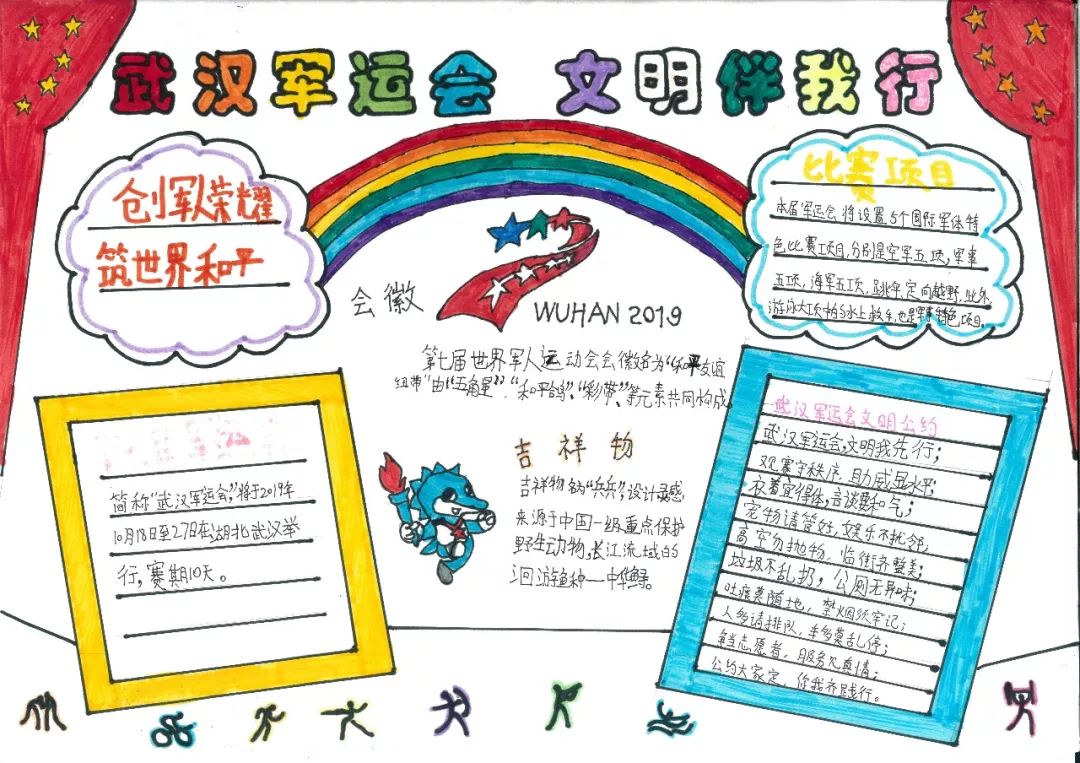 武汉军运会 文明伴我行
创军人荣耀
筑世界和平
会徽
WUHAN 2019
第七届世界军人运动会会徽名为“和平友谊
纽带”由“五角星”、“和平鸽”、“彩带”、等元素共同构成
比赛项目
本届军运会将设置5个国际军体特
色比赛项目,分别是空军五项,军事
五项,海军五项,跳伞,定向越野,此外,
游泳大项中的水上救生,也是军事特色项目。
简称“武汉军运会”,将于2019年
10月18日至27日在湖北武汉举
行,赛期10天。
吉祥物
吉祥物名为“兵兵”,设计灵感
来源于中国一级重点保护
野生动物,长江流域的
洄游鱼种——中华鲟。
武汉军运会文明公约
武汉军运会,文明我先行;
观赛守秩序,助威显水平;
衣着宜得体,言谈要和气;
宠物请管好,娱乐不扰邻;
高空勿抛物,临街齐整美;
垃圾不乱扔,公厕无异味;
吐痰莫随地,禁烟须牢记;
人多请排队,车多莫乱停;
争当志愿者,服务见真情;
公约大家定,你我齐践行。